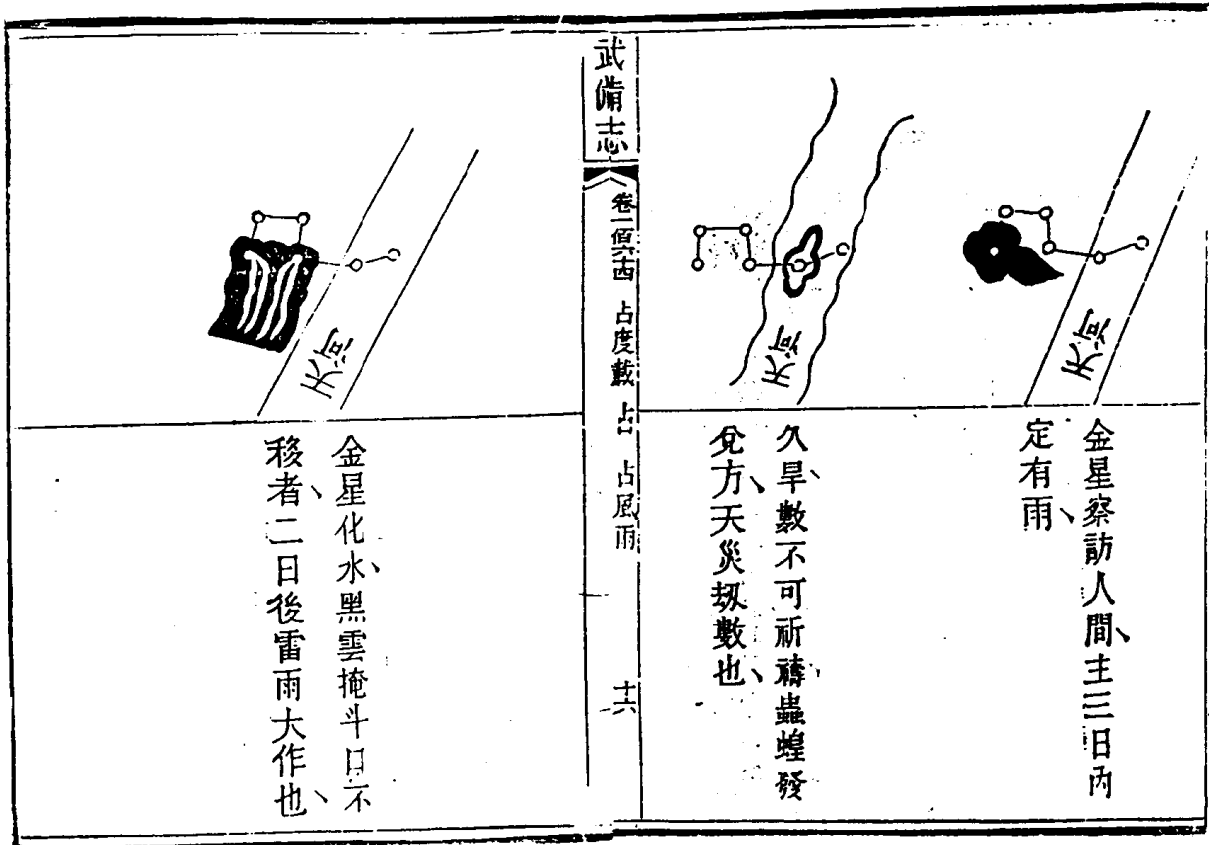 天河
金星察訪人間、主三日內
定有雨、
天河
久旱、數不可祈禱、蟲蝗發
兌方、天災刼數也、
武備志
卷一百六十四 占度載 占 占風雨
十六
天河
金星化水、黑雲掩斗口不
移者、二日後雷雨大作也、